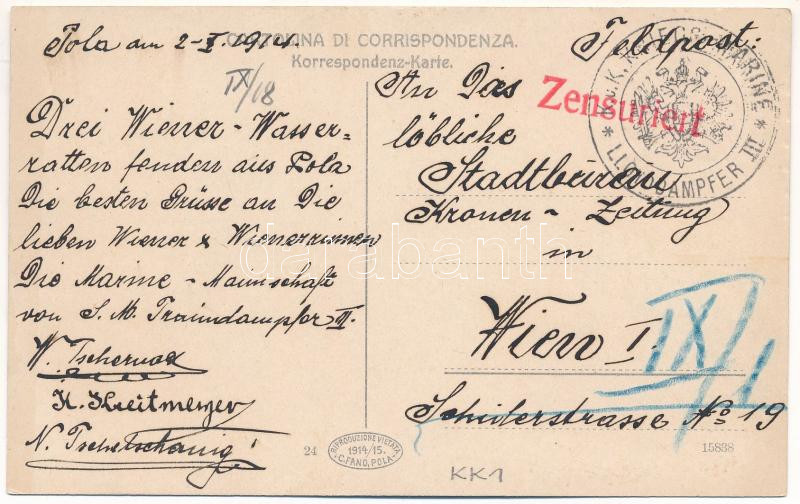 CARTOLINA DI CORRISPONDENZA.
Korrespondenz-Karte.
Pola am 2-X. 1914.
IX/18
Drei Wiener-Wasser-
ratten senden aus Pola
Die besten Grüsse an Die
lieben Wiener & Wienerrinnen
Die Marine-Mannschaft
von S. M. Traindampfer III.
W. Tschernox
K. Kreitmeyer
N.
Feldpost.
An Das
löbliche
Stadtbureau
Kronen-Zeitung
in
Wien I.
Schulerstrasse No 19
Zensuriert
K.U.K. KRIEGSMARINE * III
* LLOYDDAMPFER
IX/1
24
RIPRODUZIONE VIETATA
1914/15.
C. FANO, POLA
15838
KK1
darabanth